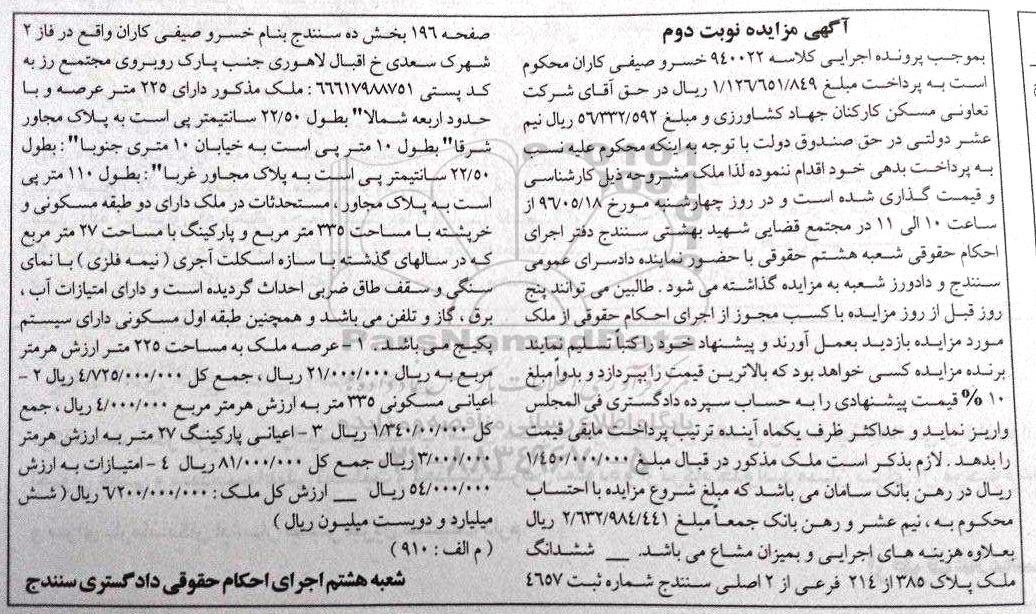 آگهی مزایده نوبت دوم
بموجب پرونده اجرایی کلاسه ۹۴۰۰۲۲ خسرو صیفی کاران محکوم
است به پرداخت مبلغ ۱/۱۲۶/۶۵۱/۸۴۹ ریال در حق آقای شرکت
تعاونی مسکن کارکنان جهاد کشاورزی و مبلغ ۵۶/۳۳۲/۵۹۲ ریال نیم
عشر دولتی در حق صندوق دولت با توجه به اینکه محکوم علیه نسب
به پرداخت بدهی خود اقدام ننموده لذا ملک مشروحه ذیل کارشناسی
و قیمت گذاری شده است و در روز چهارشنبه مورخ ۹۶/۰۵/۱۸ از
ساعت ۱۰ الی ۱۱ در مجتمع قضایی شهید بهشتی سنندج دفتر اجرای
احکام حقوقی شعبه هشتم حقوقی با حضور نماینده دادسرای عمومی
سنندج و دادورز شعبه به مزایده گذاشته می شود . طالبین می توانند پنج
روز قبل از روز مزایده با کسب مجوز از اجرای احکام حقوقی از ملک
مورد مزایده بازدید بعمل آورند و پیشنهاد خود را کتباً تسلیم نمایند
برنده مزایده کسی خواهد بود که بالاترین قیمت را بپردازد و بدواً مبلغ
۱۰ % قیمت پیشنهادی را به حساب سپرده دادگستری فی المجلس
واریز نماید و حداکثر ظرف یکماه آینده ترتیب پرداخت مابقی قیمت
را بدهد . لازم بذکر است ملک مذکور در قبال مبلغ ۱/۴۵۰/۰۰۰/۰۰۰
ریال در رهن بانک سامان می باشد که مبلغ شروع مزایده با احتساب
محکوم به ، نیم عشر و رهن بانک جمعاً مبلغ ۲/۶۳۲/۹۸۴/۴۴۱ ریال
بعلاوه هزینه های اجرایی و بمیزان مشاع می باشد. __ ششدانگ
ملک پلاک ۳۸۵ از ۲۱۴ فرعی از ۲ اصلی سنندج شماره ثبت ۴۶۵۷
صفحه ۱۹۶ بخش ده سنندج بنام خسرو صیفی کاران واقع در فاز ۲
شهرک سعدی خ اقبال لاهوری جنب پارک روبروی مجتمع رز به
کد پستی ۶۶۶۱۷۹۸۸۷۵۱ : ملک مذکور دارای ۲۲۵ متر عرصه و با
حدود اربعه شمالا" بطول ۲۲/۵۰ سانتیمتر پی است به پلاک مجاور
شرقا" بطول ۱۰ متر پی است به خیابان ۱۰ متری جنوبا" : بطول
۲۲/۵۰ سانتیمتر پی است به پلاک مجاور غربا" : بطول ۱۱۰ متر پی
است به پلاک مجاور ، مستحدثات در ملک دارای دو طبقه مسکونی و
خرپشته با مساحت ۳۳۵ متر مربع و پارکینگ با مساحت ۲۷ متر مربع
که در سالهای گذشته با سازه اسکلت آجری ( نیمه فلزی ) با نمای
سنگی و سقف طاق ضربی احداث گردیده است و دارای امتیازات آب ،
برق ، گاز و تلفن می باشد و همچنین طبقه اول مسکونی دارای سیستم
پکیج می باشد . ۱- عرصه ملک به مساحت ۲۲۵ متر ارزش هرمتر
مربع به ریال ۲۱/۰۰۰/۰۰۰ ریال ، جمع کل ۴/۷۲۵/۰۰۰/۰۰۰ ریال ۲ -
اعیانی مسکونی ۳۳۵ متر به ارزش هرمتر مربع ۴/۰۰۰/۰۰۰ ریال ، جمع
کل ۱/۳۴۰/۰۰۰/۰۰۰ ریال ۳ - اعیانی پارکینگ ۲۷ متر به ارزش هرمتر
۳/۰۰۰/۰۰۰ ریال جمع کل ۸۱/۰۰۰/۰۰۰ ریال ۴ - امتیازات به ارزش
۵۴/۰۰۰/۰۰۰ ریال __ ارزش کل ملک : ۶/۲۰۰/۰۰۰/۰۰۰ ریال ( شش
میلیارد و دویست میلیون ریال )
( م الف : ۹۱۰ )
شعبه هشتم اجرای احکام حقوقی دادگستری سنندج
ParsNamadData